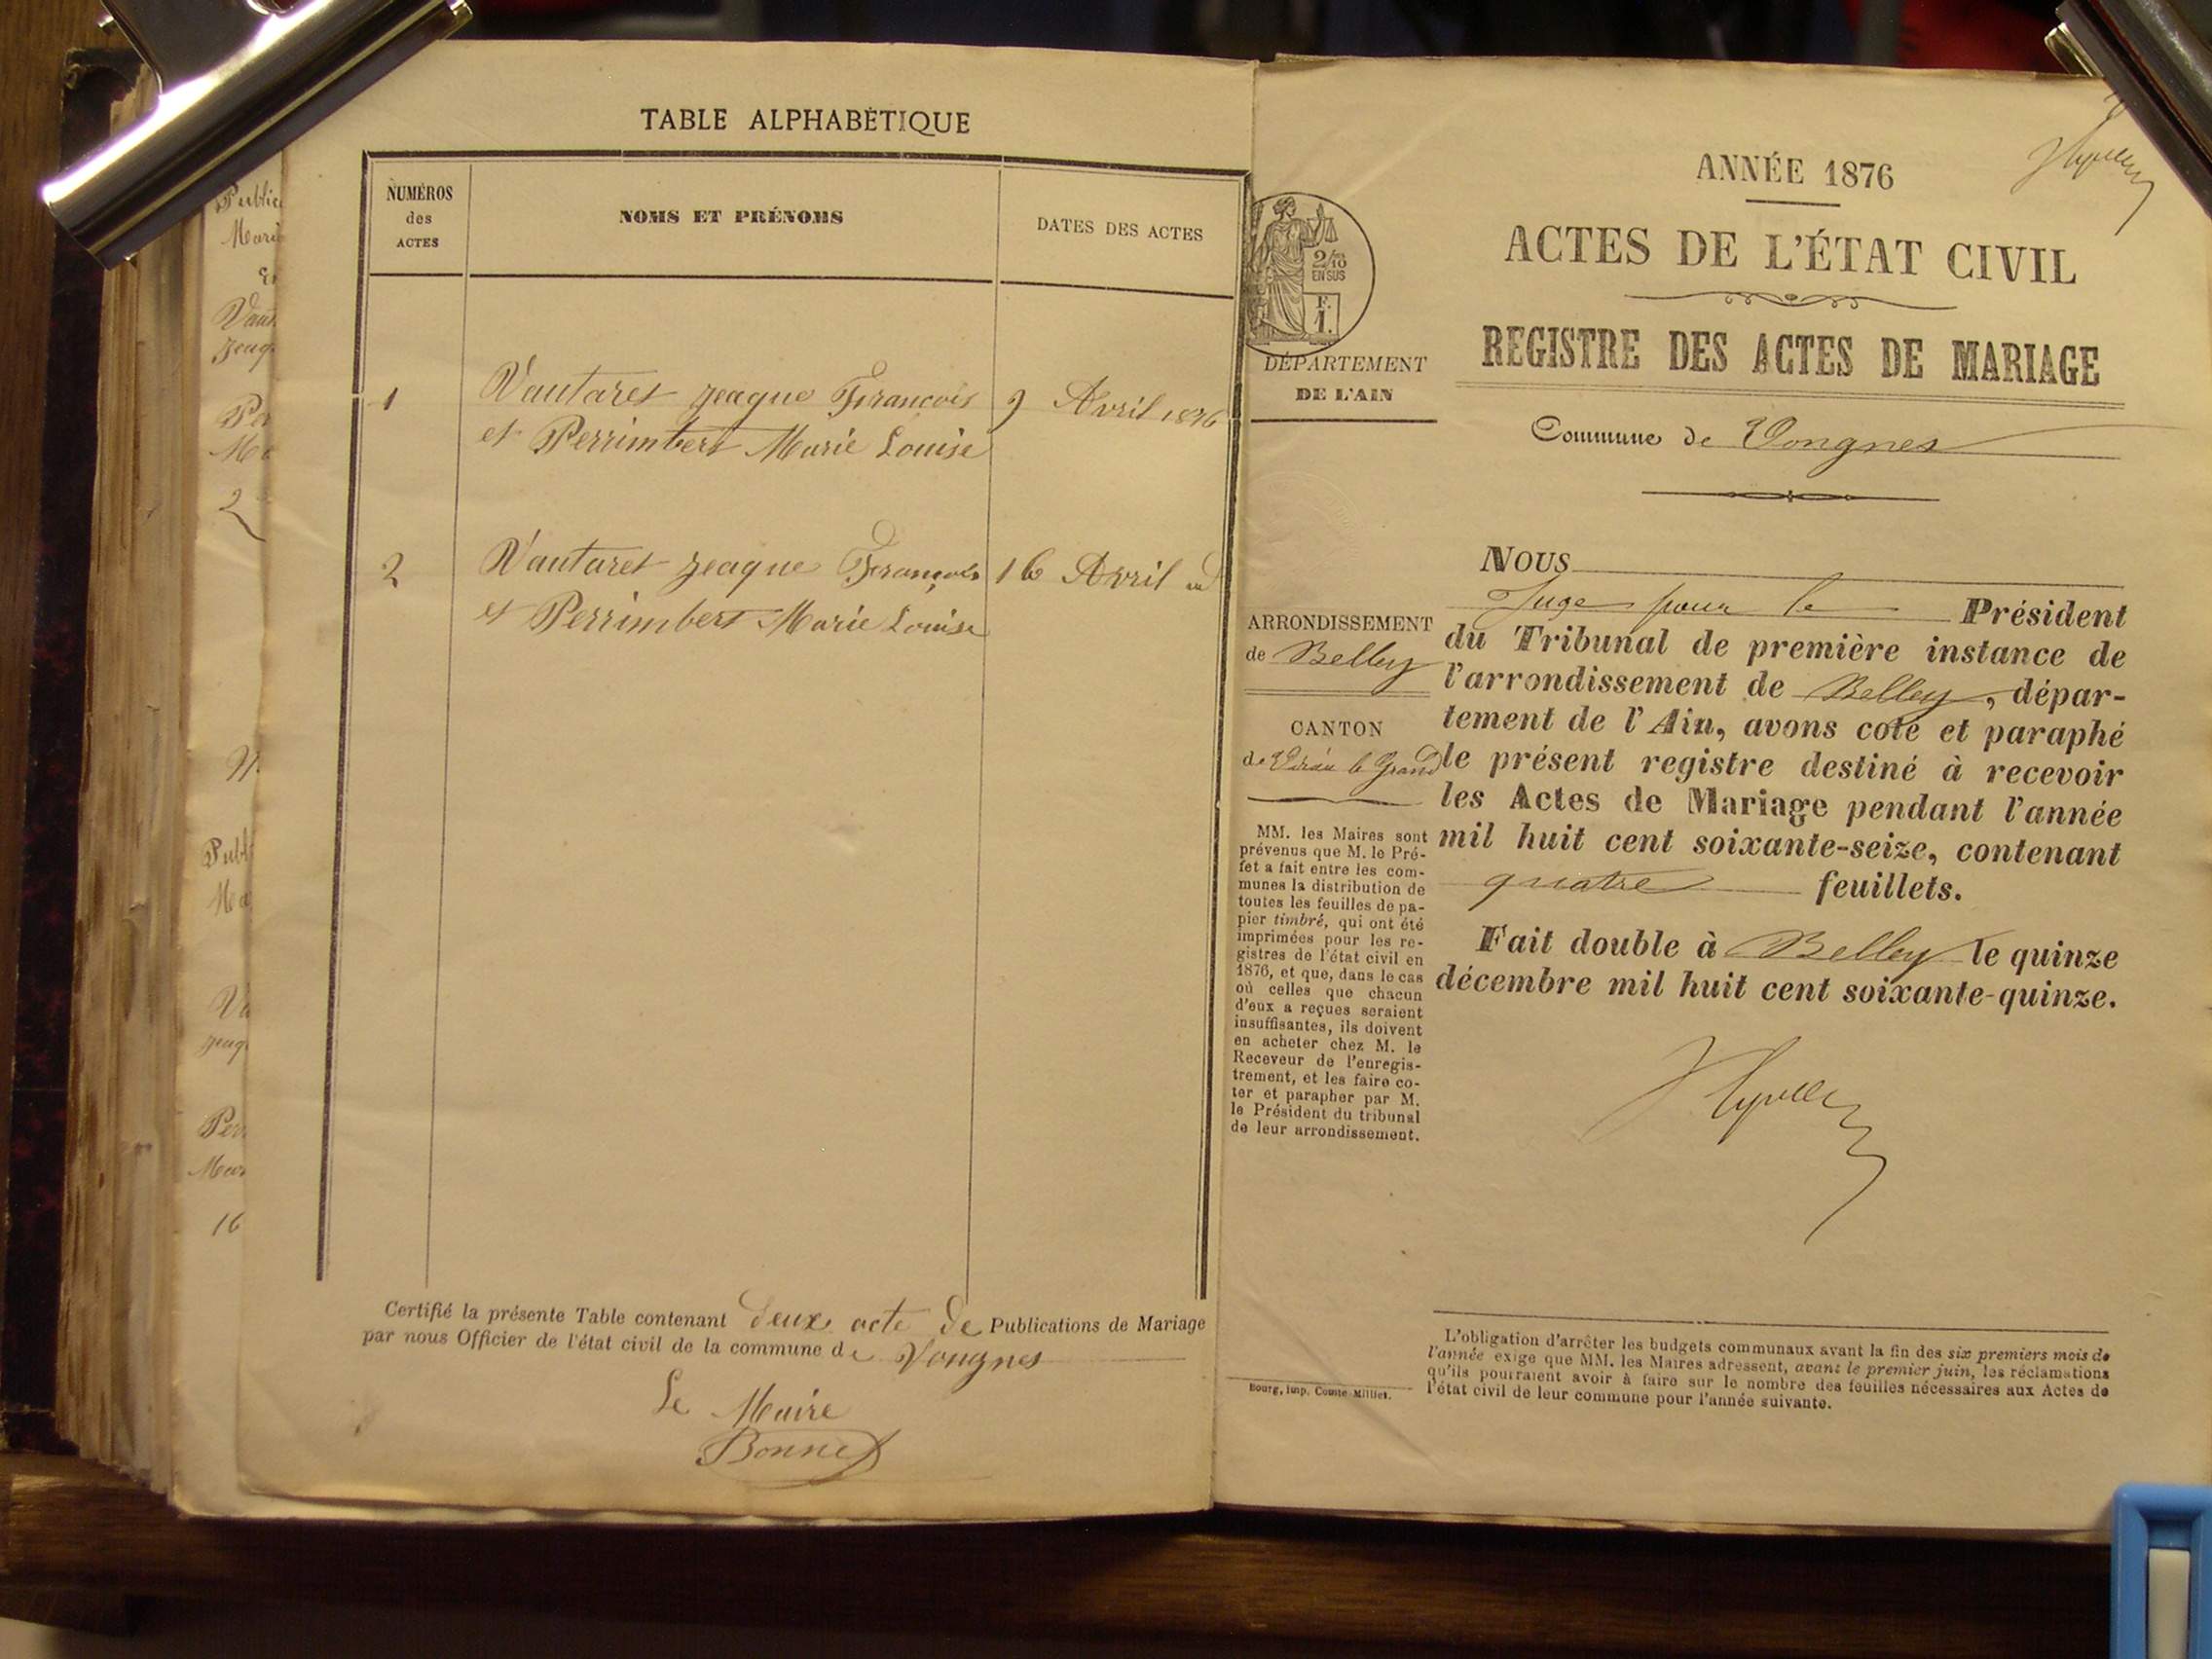 TABLE ALPHABÉTIQUE
NUMÉROS
des
ACTES
NOMS ET PRÉNOMS
DATES DES ACTES
1
Vautaret jeaque François
9 Avril 1876
et Perrimbert Marie Louise
2
Vautaret jeaque François
16 Avril id
et Perrimbert Marie Louise
Certifié la présente Table contenant deux acte de Publications de Mariage
par nous Officier de l'état civil de la commune de Vongnes
Le Maire
Bonnet
ANNÉE 1876
ACTES DE L'ÉTAT CIVIL
REGISTRE DES ACTES DE MARIAGE
Commune de Vongnes
2/10
EN SUS
F.
1.
DÉPARTEMENT
DE L'AIN
ARRONDISSEMENT
de Belley
CANTON
de Virieu le Grand
MM. les Maires sont
prévenus que M. le Pré-
fet a fait entre les com-
munes la distribution de
toutes les feuilles de pa-
pier timbré, qui ont été
imprimées pour les re-
gistres de l'état civil en
1876, et que, dans le cas
où celles que chacun
d'eux a reçues seraient
insuffisantes, ils doivent
en acheter chez M. le
Receveur de l'enregis-
trement, et les faire co-
ter et parapher par M.
le Président du tribunal
de leur arrondissement.
Bourg, imp. Comte-Milliet.
NOUS
Juge pour le Président
du Tribunal de première instance de
l'arrondissement de Belley, dépar-
tement de l'Ain, avons coté et paraphé
le présent registre destiné à recevoir
les Actes de Mariage pendant l'année
mil huit cent soixante-seize, contenant
quatre feuillets.
Fait double à Belley le quinze
décembre mil huit cent soixante-quinze.
L'obligation d'arrêter les budgets communaux avant la fin des six premiers mois de
l'année exige que MM. les Maires adressent, avant le premier juin, les réclamations
qu'ils pourraient avoir à faire sur le nombre des feuilles nécessaires aux Actes de
l'état civil de leur commune pour l'année suivante.